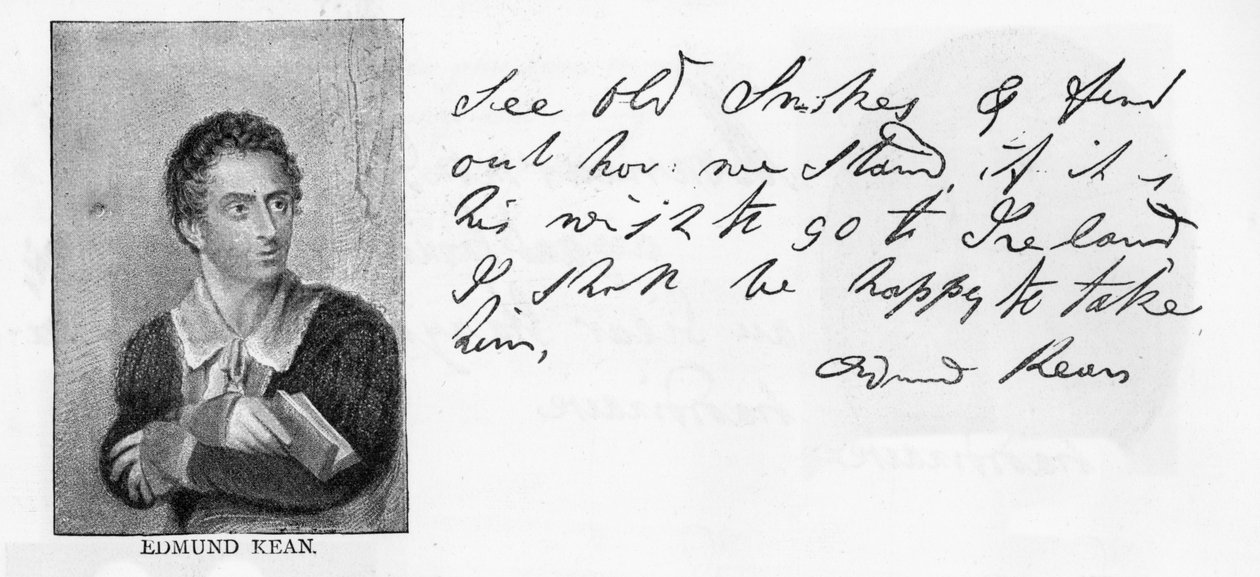 See Old Smokey & find
out how we stand, if it is
his wish to go to Ireland
I shall be happy to take
him,
Edmund Kean
EDMUND KEAN.